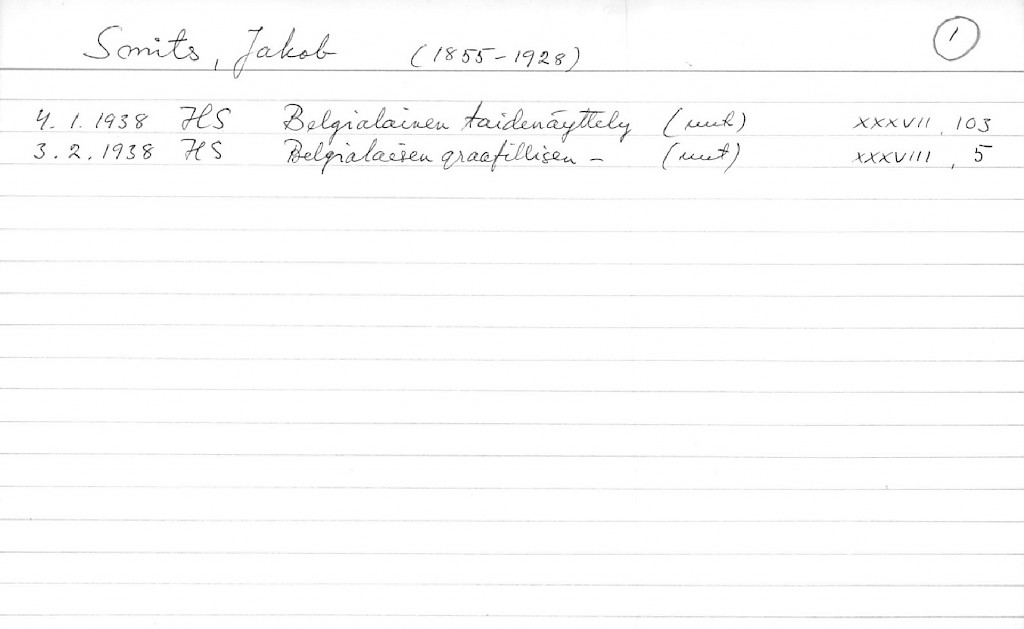 Smits, Jakob (1855-1928) 1
4. 1. 1938 HS Belgialainen taidenäyttely (muk) XXXVII, 103
3. 2. 1938 HS Belgialaisen graafillisen - XXXVIII, 5